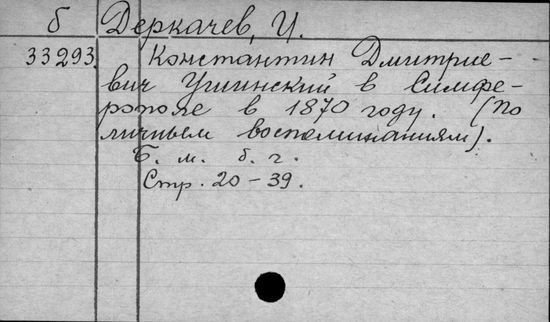 б Деркачев, И.
33293. Константин Дмитрие-
вич Ушинский в Симфе-
рополе в 1870 году. (По
личным воспоминаниям).
Б. м. б. г.
Стр. 20-39.